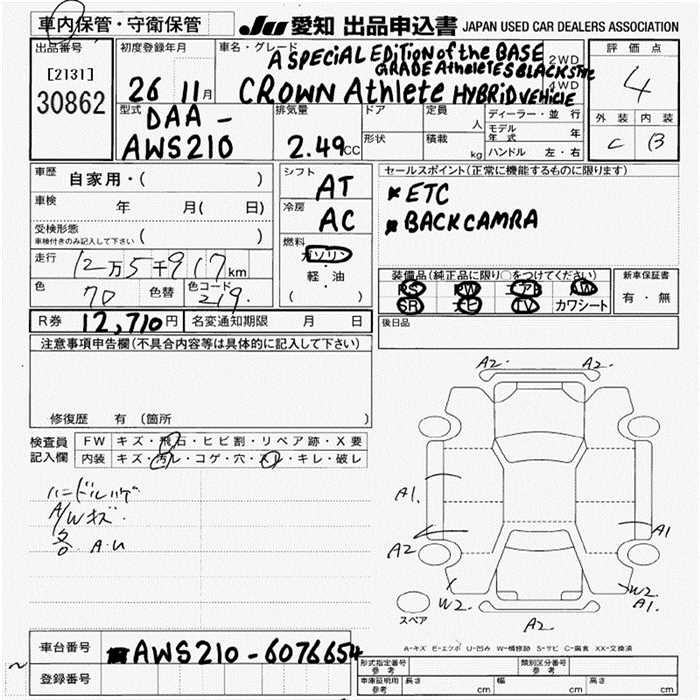 車内保管・守衛保管
JU 愛知 出品申込書 JAPAN USED CAR DEALERS ASSOCIATION
出品番号
[2131]
30862
初度登録年月
26 11月
車名・グレード
A SPECiAL EDiTiON of the BASE
GRADE AthleteS BLACKSTYLE
CROWN Athlete HYBRiDVEHiCLE
2WD
4WD
評価点
4
外装 内装
C B
型式
DAA-
AWS210
排気量
2.49CC
ドア
形状
定員 人
積載 kg
ディーラー・並行
モデル年式 年
ハンドル 左・右
車歴 自家用・( )
車検 年 月( 日)
受検形態
車検付きのみ記入して下さい ( )
走行 12万5千917km
色 70 色替 色コード 219.
シフト AT
冷房 AC
燃料
ガソリン
・
軽・油
( )
セールスポイント(正常に機能するものに限ります)
* ETC
* BACKCAMRA
装備品(純正品に限り○をつけてください)
PS PW エアB AW
SR ナビ TV カワシート
新車保証書
有・無
R券 12,710円 名変通知期限 月 日
後日品
注意事項申告欄(不具合内容等は具体的に記入して下さい)
修復歴 有 (箇所
検査員記入欄
FW キズ・飛石・ヒビ割・リペア跡・X要
内装 キズ・汚レ・コゲ・穴・スレ・キレ・破レ
A/Wキズ.
各 A.U
A2. A2.
A1.
A2
A1
W2. W2.
A1.
スペア
A2
A-キズ E-エクボ U-凹み W-補修跡 S-サビ C-腐食 XX-交換済
車台番号 AWS210-6076654
登録番号
形式指定番号 参考
類別区分番号 参考
車庫証明用 参考 長さ cm 幅 cm 高さ cm